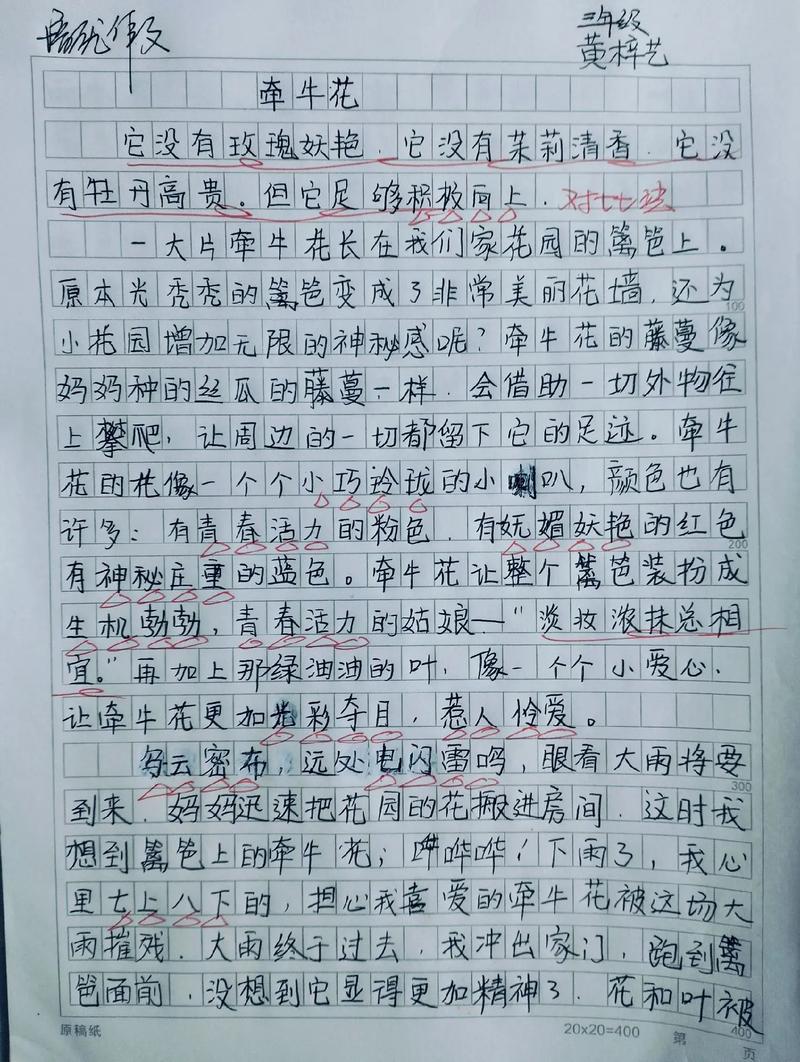 三年级
黄梓艺
牵牛花
它没有玫瑰妖艳.它没有茉莉清香.它没
有牡丹高贵。但它足够积极向上.对比法
一大片牵牛花长在我们家花园的篱笆上。
原本光秃秃的篱笆变成了非常美丽花墙,还为
100
小花园增加无限的神秘感呢?牵牛花的藤蔓像
妈妈种的丝瓜的藤蔓一样.会借助一切外物往
上攀爬,让周边的一切都留下它的足迹。牵牛
花的花像一个个小巧玲珑的小喇叭,颜色也有
许多:有青春活力的粉色.有妩媚妖艳的红色
200
有神秘庄重的蓝色。牵牛花让整个篱笆装扮成
生机勃勃,青春活力的姑娘—"淡妆浓抹总相
宜。"再加上那绿油油的叶.像一个个小爱心.
让牵牛花更加光彩夺目,惹人怜爱。
乌云密布,远处电闪雷鸣,眼看大雨将要
300
到来.妈妈迅速把花园的花搬进房间.这时我
想到篱笆上的牵牛花;哗哗哗!下雨了,我心
里七上八下的,担心我喜爱的牵牛花被这场大
雨摧残.大雨终于过去,我冲出家门,跑到篱
笆面前,没想到它显得更加精神了.花和叶被
原稿纸 20x20=400 第 页
400